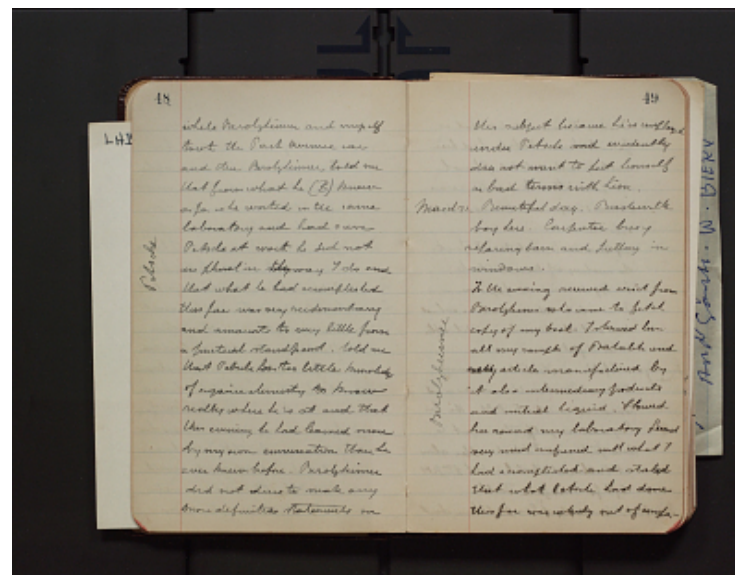 48
while Barolzheimer and myself
took the Park Avenue car
and then Barolzheimer told me
that from what he (B) knew
as he worked in the same
laboratory and had seen
Petsche at work he did not
the way I do and
that what he had accomplished
thus far was very rudimentary
and amounts to very little from
a practical standpoint. told me
that Petsche has too little knowledge
of organic chemistry to know
really where he is at and that
this evening he had learned more
by my own conversation than he
ever knew before. Barolzheimer
did not desire to make any
more definite statements on
Petsche
49
this subject because he is employed
under Petsche and evidently
does not want to put himself
on bad terms with him.
March Beautiful day.
boy here. Carpenter busy
repairing barn and putting in
windows.
In the evening received visit from
Barolzheimer who came to fetch
copy of my book. I showed him
all my samples of Bakalite and
article manufactured by
it also intermediary products
and initial liquid. Showed
him around my laboratory. Seemed
very much impressed with what I
had accomplished and stated
that what Petsche had done
thus far was wholly out of
Barolzheimer
LHB
W. DIERV